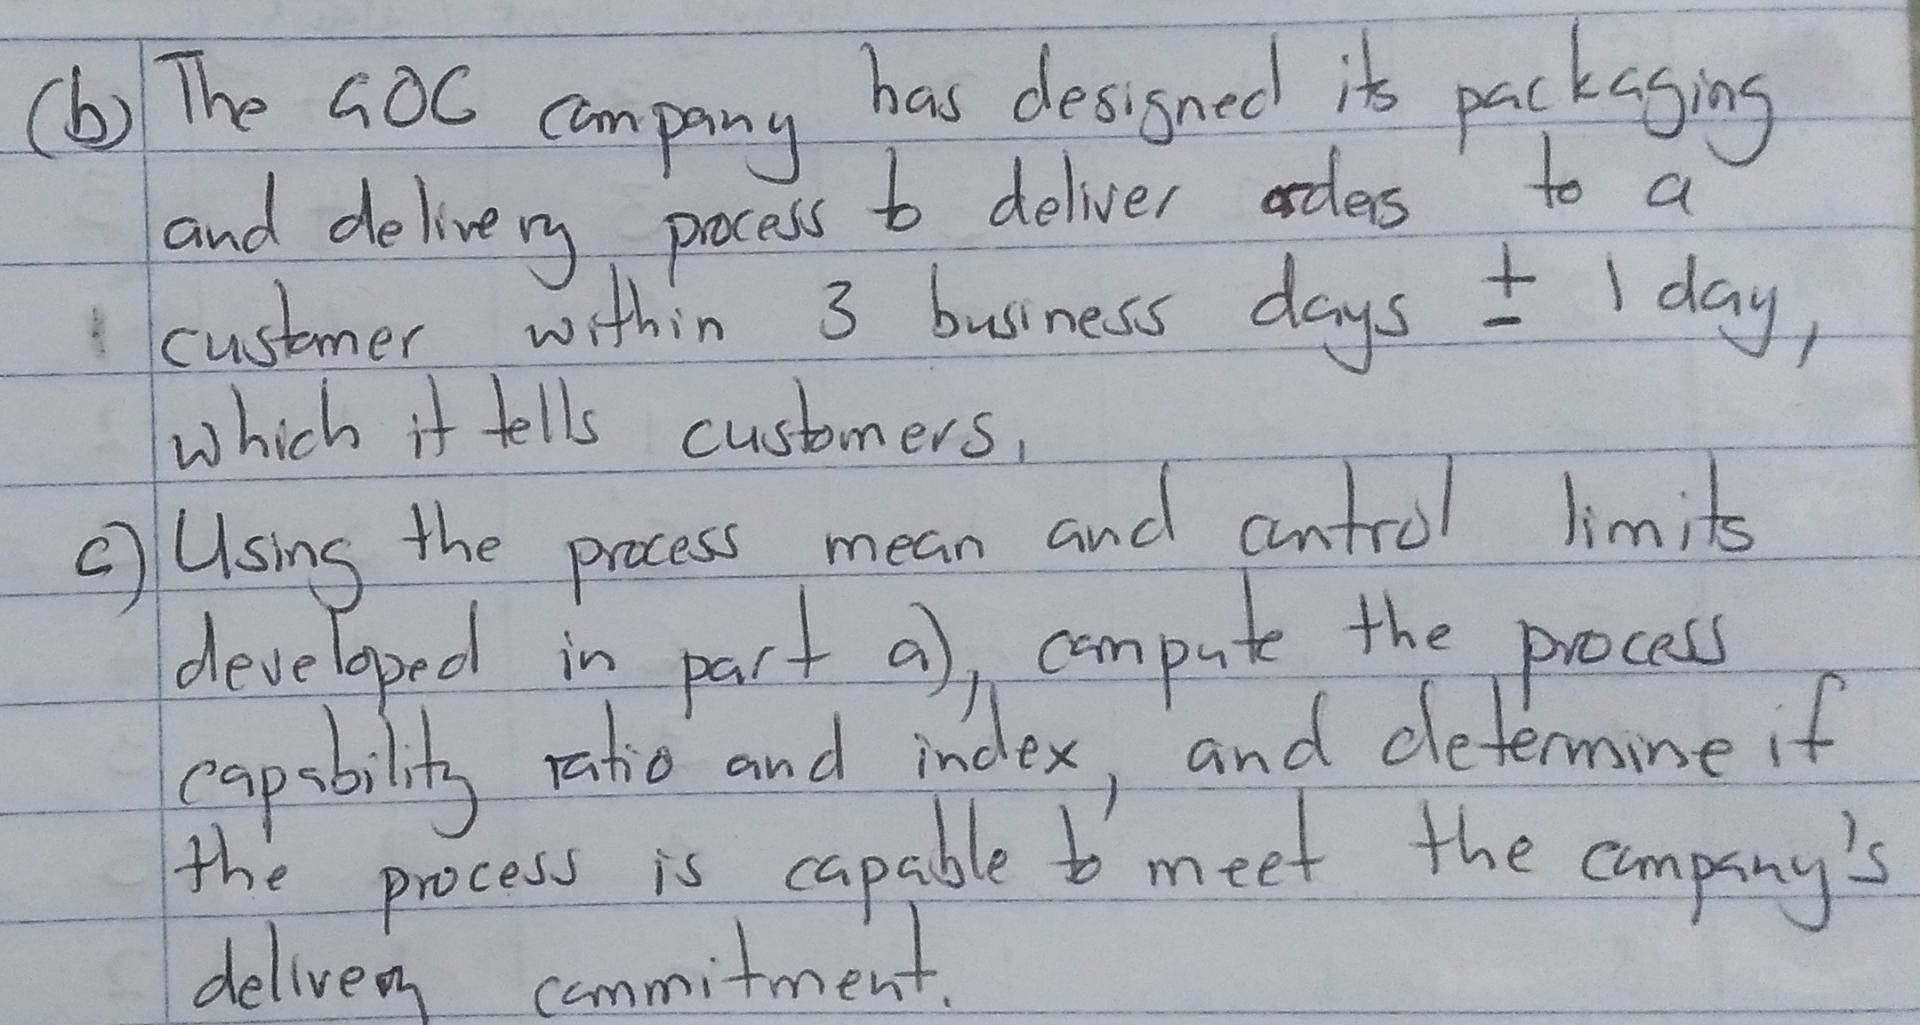 (b) The GOC company has designed its packaging
and delivery process to deliver orders to a
customer within 3 business days ± 1 day,
which it tells customers,
c) Using the process mean and control limits
developed in part a), compute the process
capability ratio and index, and determine if
the process is capable to meet the company's
delivery commitment.